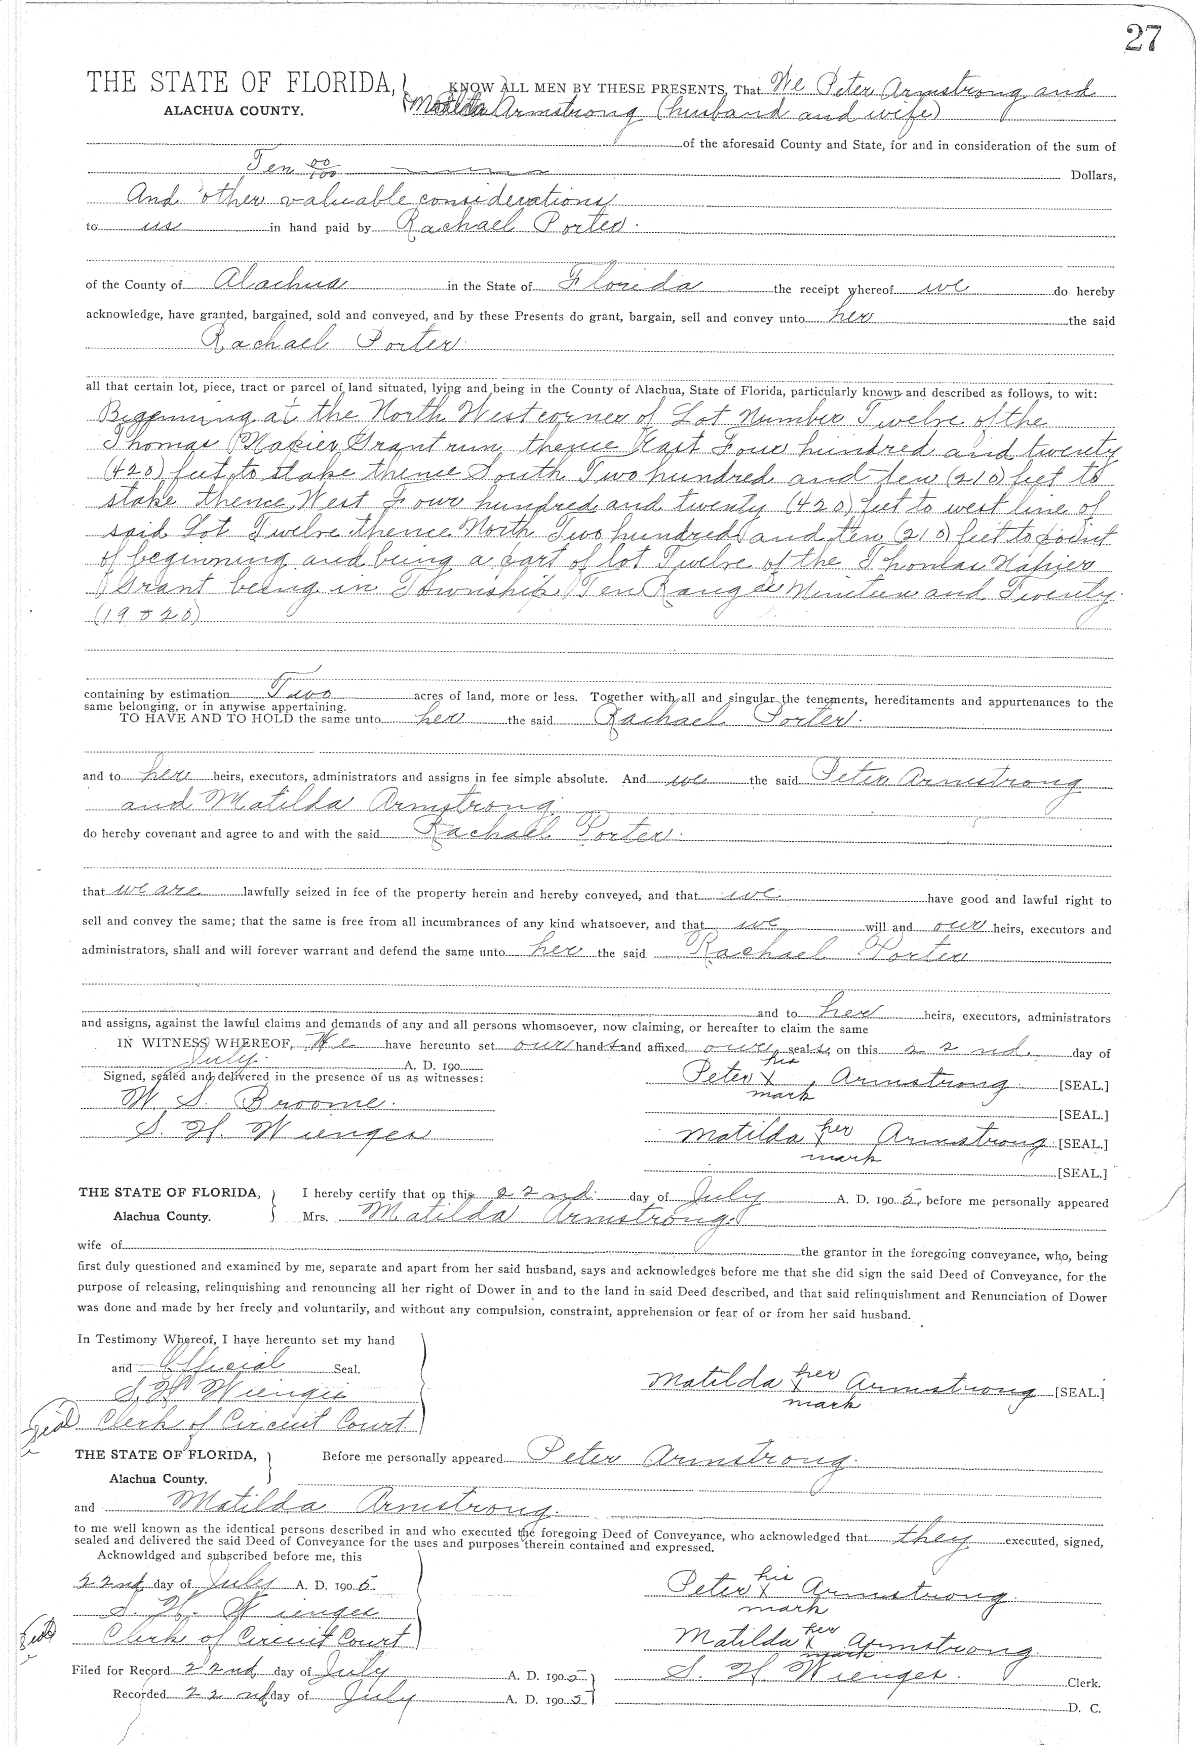 27
THE STATE OF FLORIDA, KNOW ALL MEN BY THESE PRESENTS, That We Peter Armstrong and
ALACHUA COUNTY. Matilda Armstrong (husband and wife)
of the aforesaid County and State, for and in consideration of the sum of
Ten 00/100 Dollars,
And other valuable considerations
to us in hand paid by Rachael Porter.
of the County of Alachua in the State of Florida the receipt whereof we do hereby
acknowledge, have granted, bargained, sold and conveyed, and by these Presents do grant, bargain, sell and convey unto her the said
Rachael Porter
all that certain lot, piece, tract or parcel of land situated, lying and being in the County of Alachua, State of Florida, particularly known and described as follows, to wit:
Beginning at the North West corner of Lot Number Twelve of the
Thomas Napier Grant run thence East Four hundred and twenty
(420) feet to stake thence South Two hundred and ten (210) feet to
stake thence West Four hundred and twenty (420) feet to west line of
said Lot Twelve thence North Two hundred and ten (210) feet to point
of beginning and being a part of lot Twelve of the Thomas Napier
Grant being in Township Ten Ranges Nineteen and Twenty.
(19 & 20)
containing by estimation Two acres of land, more or less. Together with all and singular the tenements, hereditaments and appurtenances to the
same belonging, or in anywise appertaining.
TO HAVE AND TO HOLD the same unto her the said Rachael Porter.
and to her heirs, executors, administrators and assigns in fee simple absolute. And we the said Peter Armstrong
and Matilda Armstrong
do hereby covenant and agree to and with the said Rachael Porter.
that we are lawfully seized in fee of the property herein and hereby conveyed, and that we have good and lawful right to
sell and convey the same; that the same is free from all incumbrances of any kind whatsoever, and that we will and our heirs, executors and
administrators, shall and will forever warrant and defend the same unto her the said Rachael Porter
and to her heirs, executors, administrators
and assigns, against the lawful claims and demands of any and all persons whomsoever, now claiming, or hereafter to claim the same
IN WITNESS WHEREOF, We have hereunto set our hands and affixed our seals, on this 22nd. day of
July. A. D. 190
Signed, sealed and delivered in the presence of us as witnesses: Peter his X mark Armstrong [SEAL.]
W. S. Broome. [SEAL.]
S. H. Wienges Matilda her mark Armstrong [SEAL.]
[SEAL.]
THE STATE OF FLORIDA, I hereby certify that on this 22nd. day of July A. D. 1905, before me personally appeared
Alachua County. Mrs. Matilda Armstrong.
wife of the grantor in the foregoing conveyance, who, being
first duly questioned and examined by me, separate and apart from her said husband, says and acknowledges before me that she did sign the said Deed of Conveyance, for the
purpose of releasing, relinquishing and renouncing all her right of Dower in and to the land in said Deed described, and that said relinquishment and Renunciation of Dower
was done and made by her freely and voluntarily, and without any compulsion, constraint, apprehension or fear of or from her said husband.
In Testimony Whereof, I have hereunto set my hand
and Official Seal.
S. H. Wienges Matilda her X mark Armstrong [SEAL.]
Clerk of Circuit Court.
THE STATE OF FLORIDA, Before me personally appeared Peter Armstrong.
Alachua County.
and Matilda Armstrong.
to me well known as the identical persons described in and who executed the foregoing Deed of Conveyance, who acknowledged that they executed, signed,
sealed and delivered the said Deed of Conveyance for the uses and purposes therein contained and expressed.
Acknowldged and subscribed before me, this
22nd day of July A. D. 1905 Peter his X mark Armstrong
S. H. Wienges
Clerk of Circuit Court Matilda her X mark Armstrong
Filed for Record 22nd day of July A. D. 1905 S. H. Wienges. Clerk.
Recorded 22nd day of July A. D. 1905 D. C.